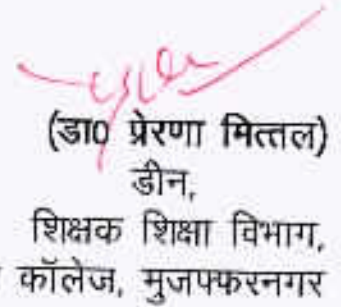 (डा0 प्रेरणा मित्तल)
डीन,
शिक्षक शिक्षा विभाग,
कॉलेज, मुजफ्फरनगर